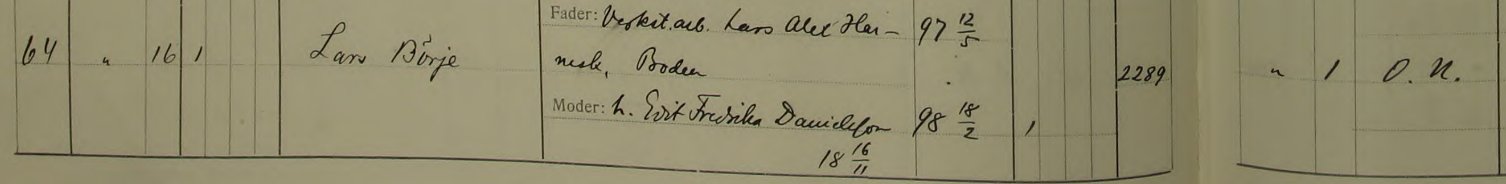 Fader: Verkst.arb. Lars Alex Har- 97 12/5
64 " 16 1 Lars Börje nesk, Boden 2289 " 1 O. N.
Moder: h. Edit Fredrika Danielsson 98 18/2 1
18 16/11